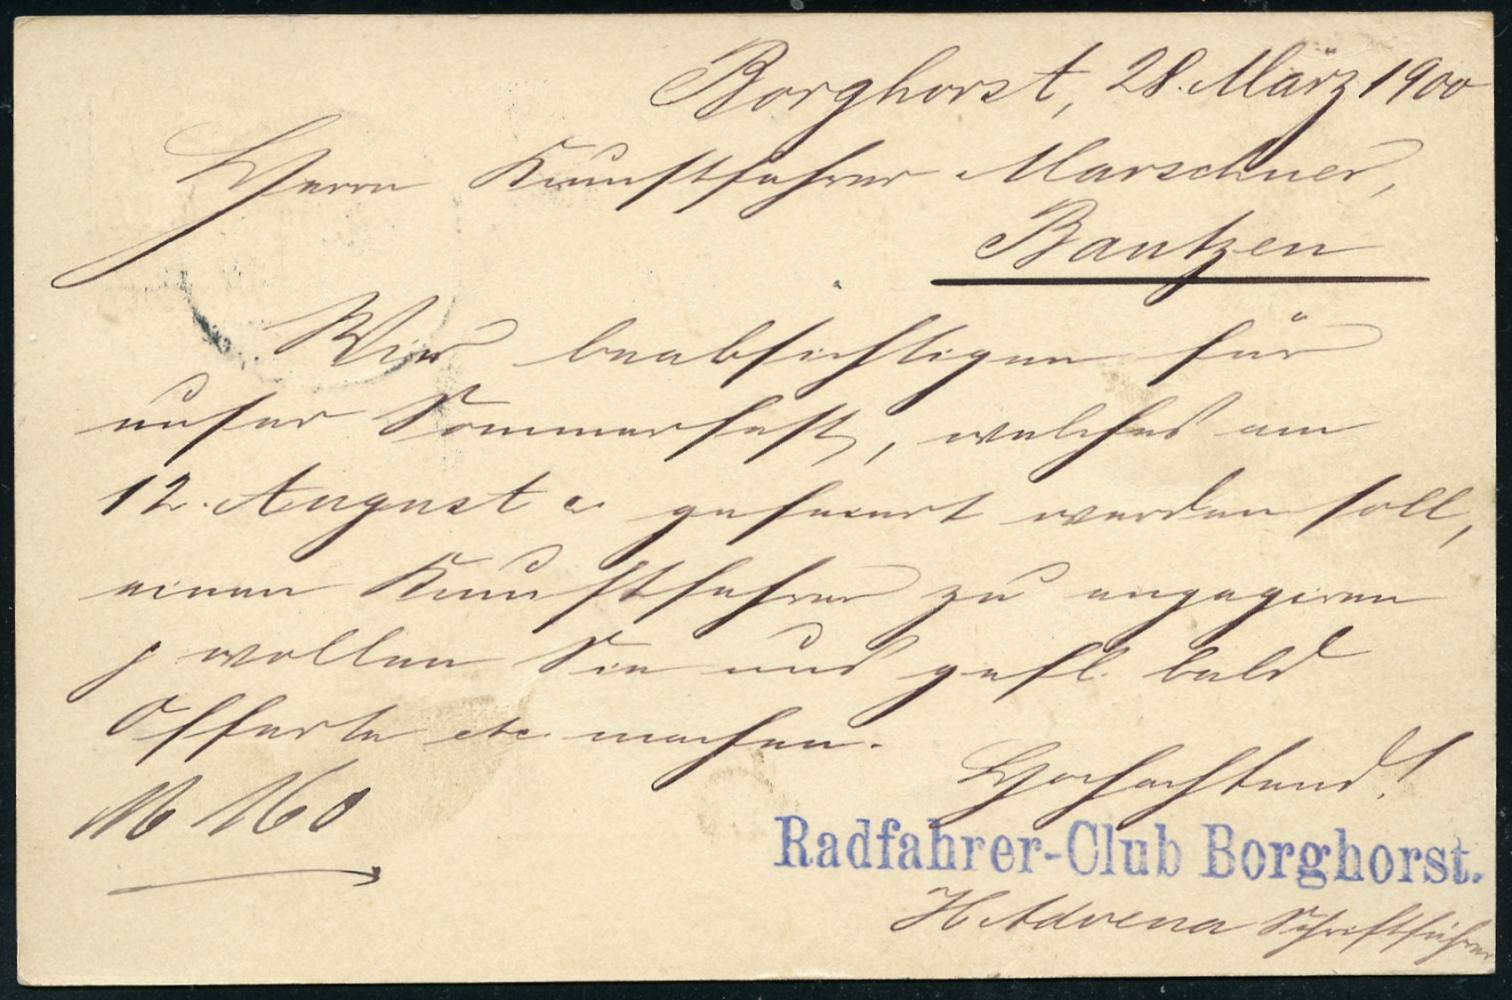 Borghorst, 28. März 1900
Herrn Kunstfahrer Marschner,
Bautzen
Wir beabsichtigen für
unser Sommerfest, welches am
12. August c. gefeiert werden soll,
einen Kunstfahrer zu engagieren
wollen Sie uns gefl. bald
Offerte etc. machen.
Hochachtend!
M 160
Radfahrer-Club Borghorst.
H Advena Schriftführer